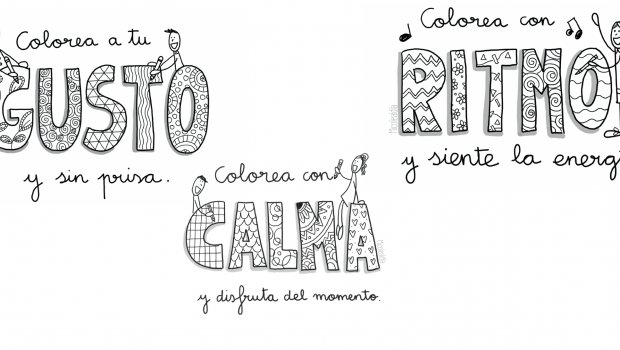 Colorea a tu
GUSTO
y sin prisa.
Colorea con
CALMA
y disfruta del momento.
Colorea con
RITMO
y siente la energí